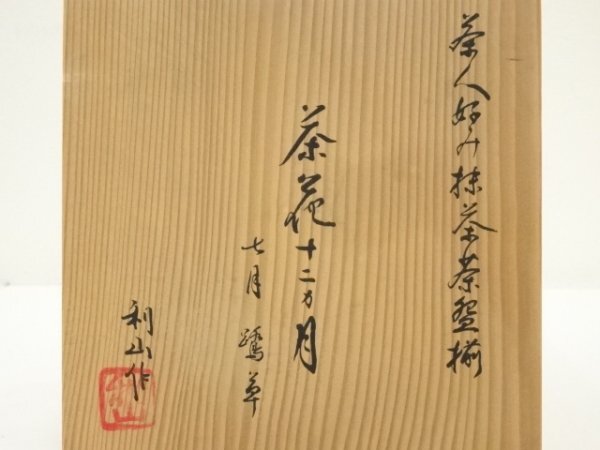 茶人好み抹茶茶盌揃
茶花十二カ月
七月 鷺草
利山作